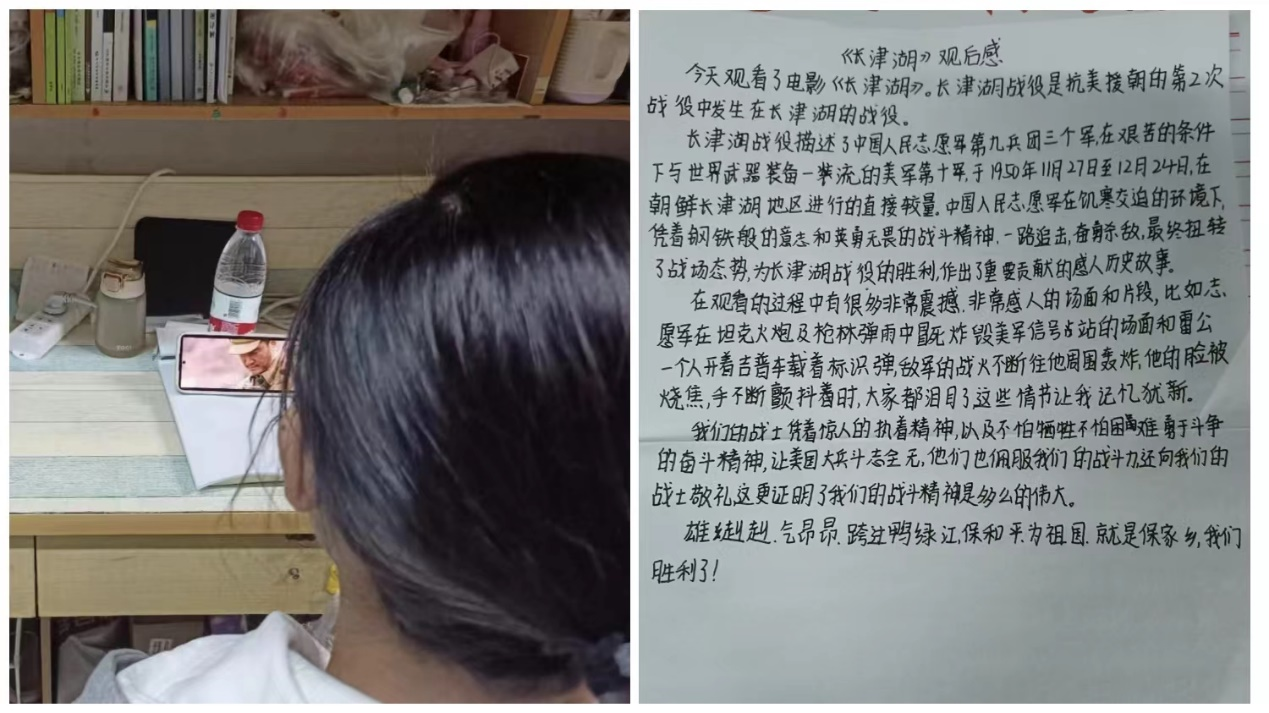 《长津湖》观后感
今天观看了电影《长津湖》。长津湖战役是抗美援朝的第2次
战役中发生在长津湖的战役。
长津湖战役描述了中国人民志愿军第九兵团三个军,在艰苦的条件
下与世界武器装备一装流的美军第十军,于1950年11月27日至12月24日,在
朝鲜长津湖地区进行的直接较量。中国人民志愿军在饥寒交迫的环境下,
凭着钢铁般的意志和英勇无畏的战斗精神.一路追击,奋勇杀敌,最终扭转
了战场态势,为长津湖战役的胜利,作出了重要贡献的感人历史故事。
在观看的过程中有很多非常震撼.非常感人的场面和片段,比如志
愿军在坦克火炮及枪林弹雨中冒死炸毁美军信号站的场面和雷公
一个人开着吉普车载着标识弹,敌军的战火不断往他周围轰炸,他的脸被
烧焦,手不断颤抖着时,大家都泪目了这些情节让我记忆犹新。
我们的战士凭着惊人的执着精神,以及不怕牺牲不怕困难勇于斗争
的奋斗精神,让美国大兵斗志全无,他们也佩服我们的战斗力,还向我们的
战士敬礼这更证明了我们的战斗精神是多么的伟大。
雄赳赳.气昂昂.跨过鸭绿江,保和平为祖国.就是保家乡,我们
胜利了!